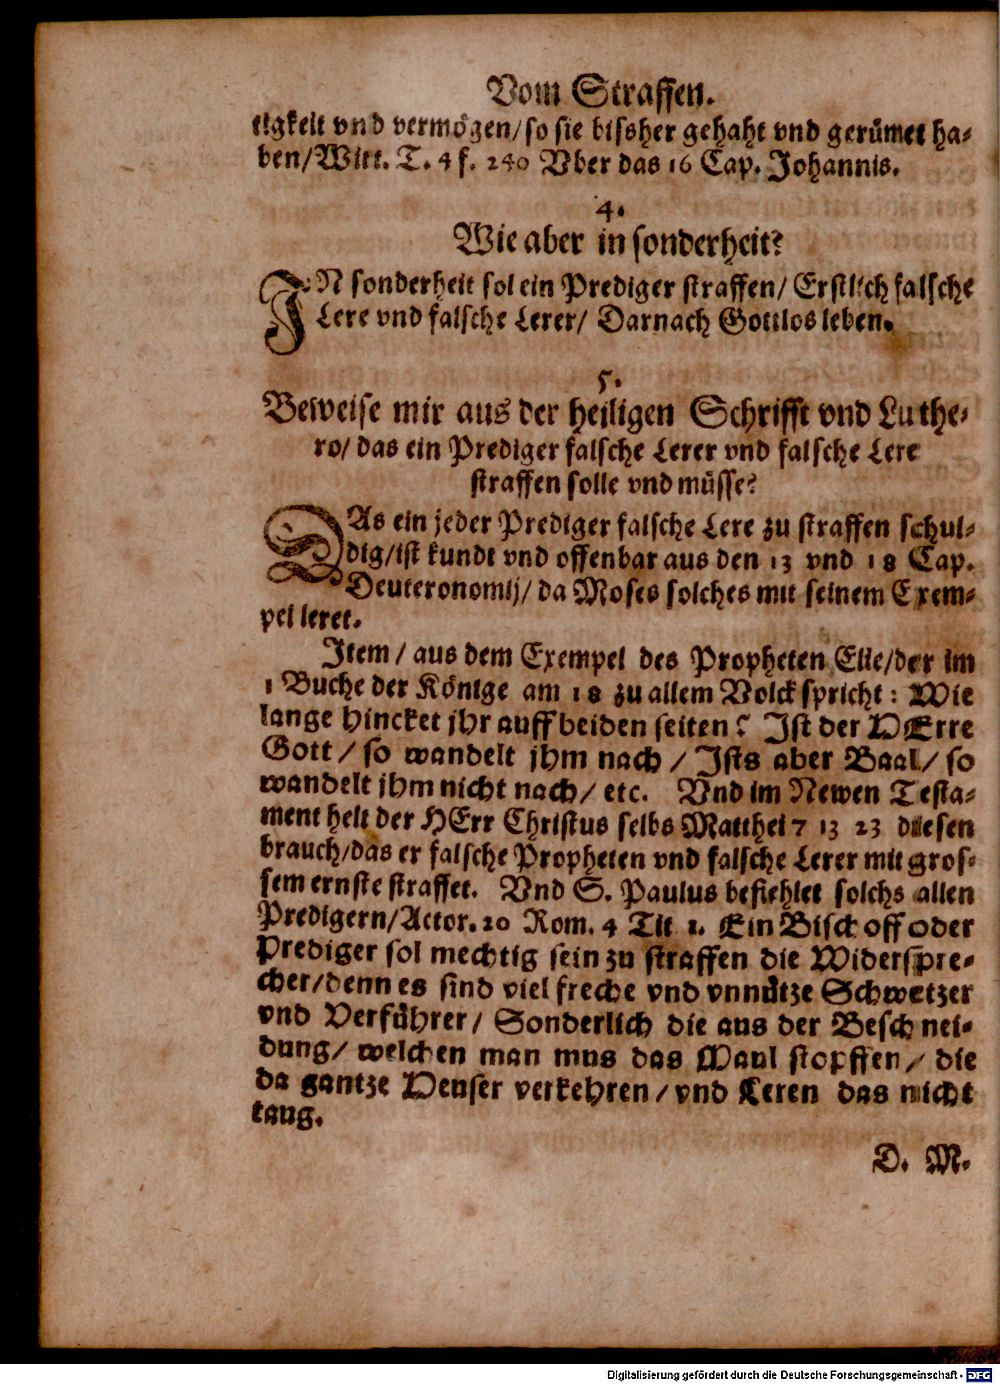 Vom Straffen.
tigkeit vnd vermögen/ so sie bissher gehaht vnd gerümet ha-
ben/ Witt. T. 4 f. 240 Vber das 16 Cap. Johannis.
4.
Wie aber in sonderheit?
IN sonderheit sol ein Prediger straffen/ Erstlich falsche
Lere vnd falsche Lerer/ Darnach Gottlos leben.
5.
Beweise mir aus der heiligen Schrifft vnd Luthe-
ro/ das ein Prediger falsche Lerer vnd falsche Lere
straffen solle vnd müsse?
DAs ein jeder Prediger falsche Lere zu straffen schul-
dig/ ist kundt vnd offenbar aus den 13 vnd 18 Cap.
Deuteronomij/ da Moses solches mit seinem Exem-
pel leret.
Item/ aus dem Exempel des Propheten Elie/ der im
1 Buche der Könige am 18 zu allem Volck spricht: Wie
lange hincket jhr auff beiden seiten? Ist der HErre
Gott/ so wandelt jhm nach/ Ists aber Baal/ so
wandelt jhm nicht nach/ etc. Vnd im Newen Testa-
ment helt der HErr Christus selbs Matthei 7 13 23 diesen
brauch/ das er falsche Propheten vnd falsche Lerer mit gros-
sem ernste straffet. Vnd S. Paulus befiehlet solchs allen
Predigern/ Actor. 20 Rom. 4 Tit 1. Ein Bischoff oder
Prediger sol mechtig sein zu straffen die Widerspre-
cher/ denn es sind viel freche vnd vnnütze Schwetzer
vnd Verführer/ Sonderlich die aus der Beschnei-
dung/ welchen man mus das Maul stopffen/ die
da gantze Heuser verkehren/ vnd Leren das nicht
taug.
D. M.
Digitalisierung gefördert durch die Deutsche Forschungsgemeinschaft - DFG